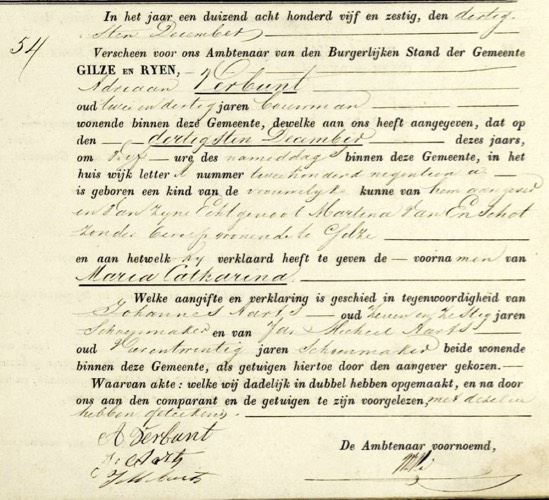 In het jaar een duizend acht honderd vijf en zestig, den dertig-
sten December
54
Verscheen voor ons Ambtenaar van den Burgerlijken Stand der Gemeente
GILZE EN RYEN,
Adriaan Verbunt
oud twee en dertig jaren bouwman
wonende binnen deze Gemeente, dewelke aan ons heeft aangegeven, dat op
den dertigsten December dezes jaars,
om ure des namiddags binnen deze Gemeente, in het
huis wijk letter nummer tweehonderd negentien a
is geboren een kind van de vrouwelijke kunne van hem aangever
en van zijne Echtgenoot Martina Van Enschot
zonder beroep wonende te Gilze
en aan hetwelk hij verklaard heeft te geven de voornamen van
Maria Catharina
Welke aangifte en verklaring is geschied in tegenwoordigheid van
Johannes Aarts oud zeven en zestig jaren
Schoenmaker en van Jan Michiel Aarts
oud Vierentwintig jaren Schoenmaker beide wonende
binnen deze Gemeente, als getuigen hiertoe door den aangever gekozen.
Waarvan akte: welke wij dadelijk in dubbel hebben opgemaakt, en na door
ons aan den comparant en de getuigen te zijn voorgelezen, met dezelve
hebben geteekend.
A Verbunt
De Ambtenaar voornoemd,
J. Aarts